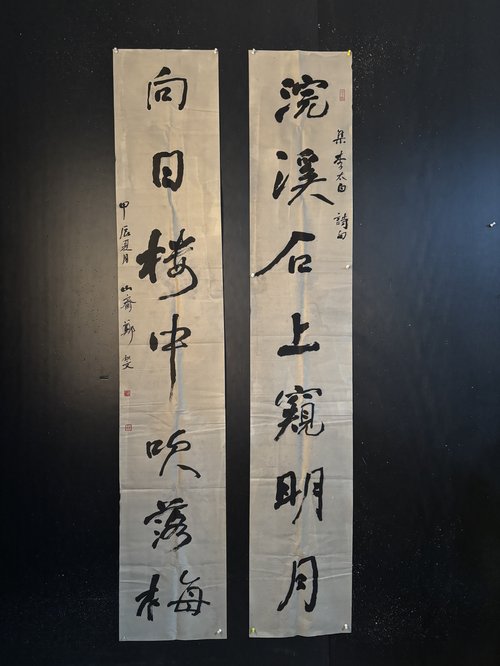 浣溪石上窺明月
集李太白詩句
向日楼中吹落梅
甲辰 月 山齋鄭